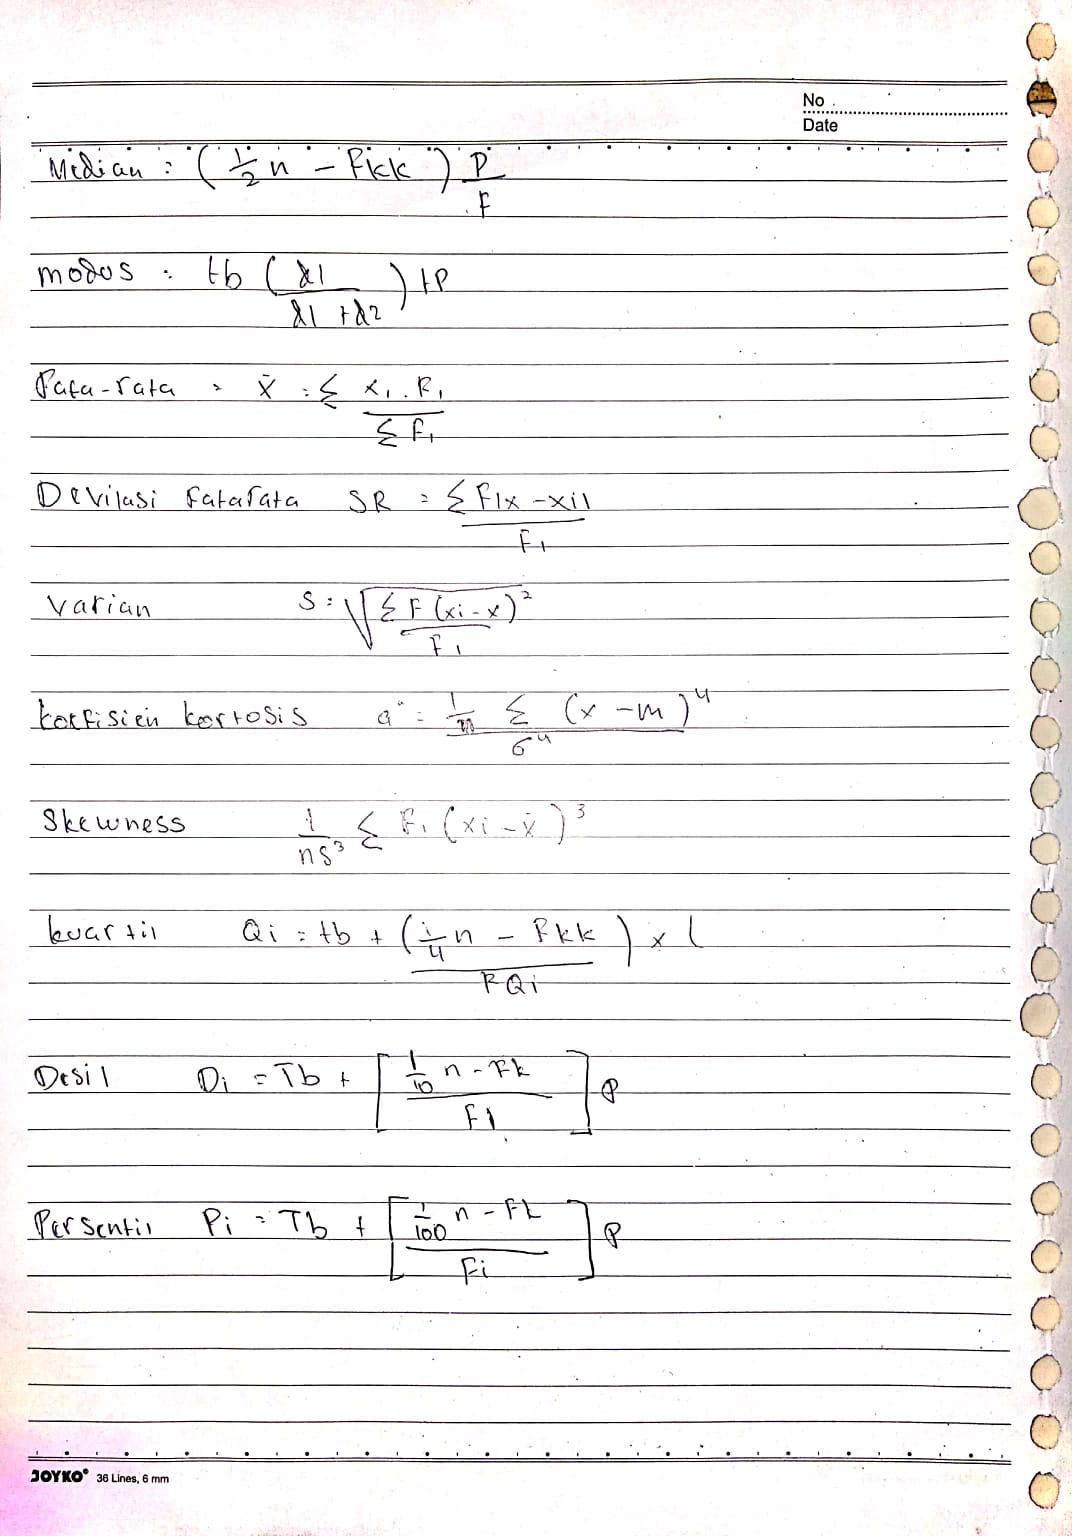 No
Date
Median : (1/2 n - Fkk) P/F
modus : tb (d1 / d1 + d2) + P
Rata-rata = x̄ = Σ x₁ . F₁ / Σ F₁
Devilasi ratarata SR = Σ F|x - xi| / F₁
Varian S = √(Σ F (xi - x)² / F₁)
koefisien kortosis a⁴ = 1/n Σ (x - m)⁴ / σ⁴
Skewness 1/ns³ Σ F₁ (xi - x̄)³
kuartil Qi = tb + (i/4 n - Fkk / FQi) x l
Desil Di = Tb + [1/10 n - Fk / F1] P
Persentil Pi = Tb + [1/100 n - Fk / Fi] P
JOYKO 36 Lines, 6 mm